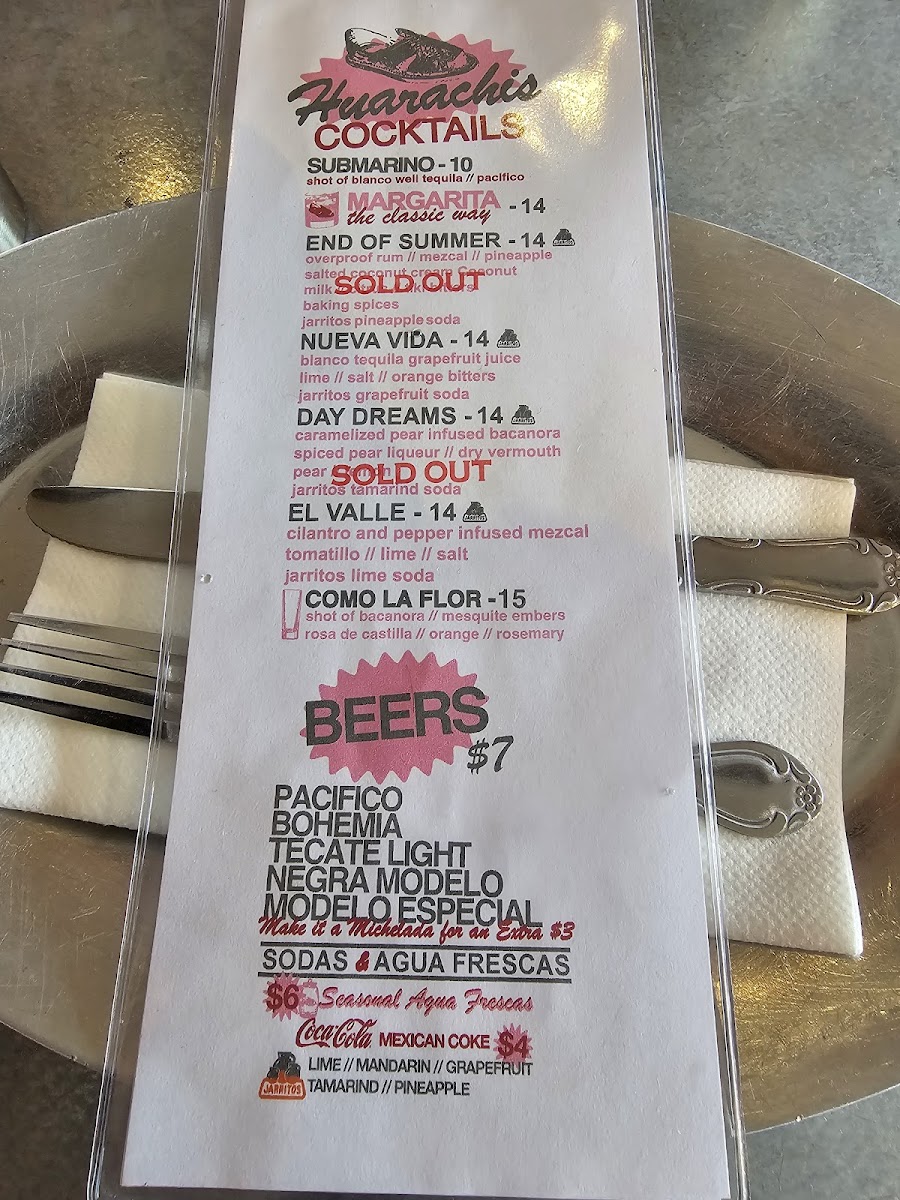 Huarachis
COCKTAILS
SUBMARINO - 10
shot of blanco well tequila // pacifico
MARGARITA - 14
the classic way
END OF SUMMER - 14
overproof rum // mezcal // pineapple
salted coconut cream Coconut
milk
SOLD OUT
baking spices
jarritos pineapple soda
NUEVA VIDA - 14
blanco tequila grapefruit juice
lime // salt // orange bitters
jarritos grapefruit soda
DAY DREAMS - 14
caramelized pear infused bacanora
spiced pear liqueur // dry vermouth
pear
SOLD OUT
jarritos tamarind soda
EL VALLE - 14
cilantro and pepper infused mezcal
tomatillo // lime // salt
jarritos lime soda
COMO LA FLOR - 15
shot of bacanora // mesquite embers
rosa de castilla // orange // rosemary
BEERS
$7
PACIFICO
BOHEMIA
TECATE LIGHT
NEGRA MODELO
MODELO ESPECIAL
Make it a Michelada for an Extra $3
SODAS & AGUA FRESCAS
$6 Seasonal Agua Frescas
Coca-Cola MEXICAN COKE $4
LIME // MANDARIN // GRAPEFRUIT
JARRITOS TAMARIND // PINEAPPLE